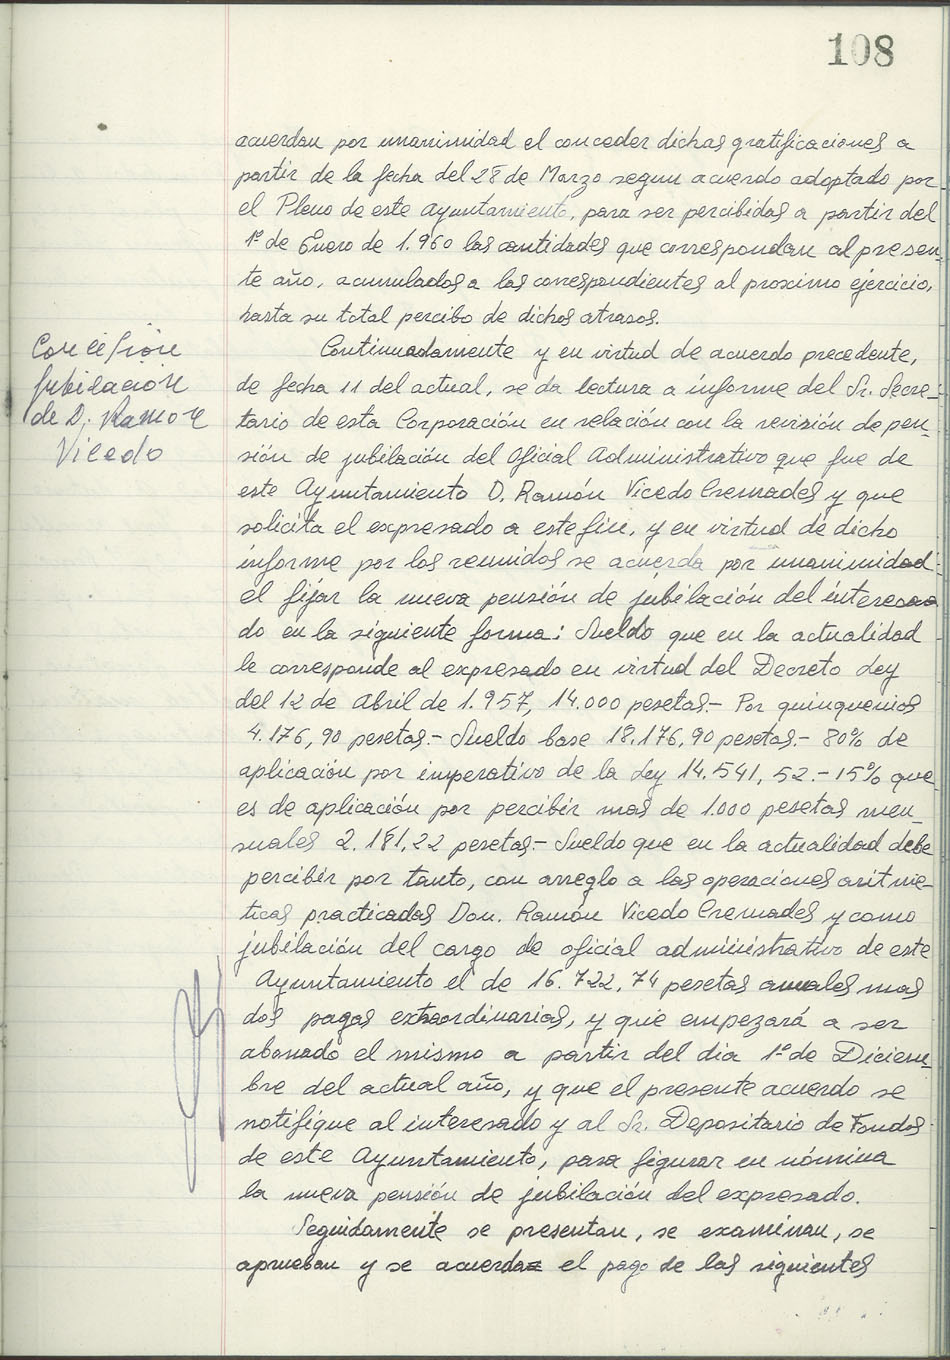 108
acuerdan por unanimidad el conceder dichas gratificaciones a
partir de la fecha del 28 de Marzo segun acuerdo adoptado por
el Pleno de este Ayuntamiento, para ser percibidas a partir del
1º de Enero de 1.960 las cantidades que correspondan al presen-
te año, acumulados a las correspondientes al proximo ejercicio,
hasta su total percibo de dichos atrasos.
Concesión
jubilación
de D. Ramon
Vicedo
Continuadamente y en virtud de acuerdo precedente,
de fecha 11 del actual, se da lectura a informe del Sr. Secre-
tario de esta Corporación en relación con la revisión de pen-
sión de jubilación del Oficial Administrativo que fue de
este Ayuntamiento D. Ramón Vicedo Cremades y que
solicita el expresado a este fin, y en virtud de dicho
informe por los reunidos se acuerda por unanimidad
el fijar la nueva pensión de jubilación del interesa
do en la siguiente forma: Sueldo que en la actualidad
le corresponde al expresado en virtud del Decreto Ley
del 12 de Abril de 1.957, 14.000 pesetas.- Por quinquenios
4.176,90 pesetas.- Sueldo base 18.176,90 pesetas.- 80% de
aplicación por imperativo de la Ley 14.541, 52.- 15% que
es de aplicación por percibir mas de 1.000 pesetas men-
suales 2.181,22 pesetas.- Sueldo que en la actualidad debe
percibir por tanto, con arreglo a las operaciones aritme-
ticas practicadas Don. Ramón Vicedo Cremades y como
jubilación del cargo de oficial administrativo de este
Ayuntamiento el de 16.722,74 pesetas anuales mas
dos pagas extraordinarias, y que empezará a ser
abonado el mismo a partir del dia 1º de Diciem-
bre del actual año, y que el presente acuerdo se
notifique al interesado y al Sr. Depositario de Fondos
de este Ayuntamiento, para figurar en nómina
la nueva pensión de jubilación del expresado.
Seguidamente se presentan, se examinan, se
aprueban y se acuerda el pago de las siguientes